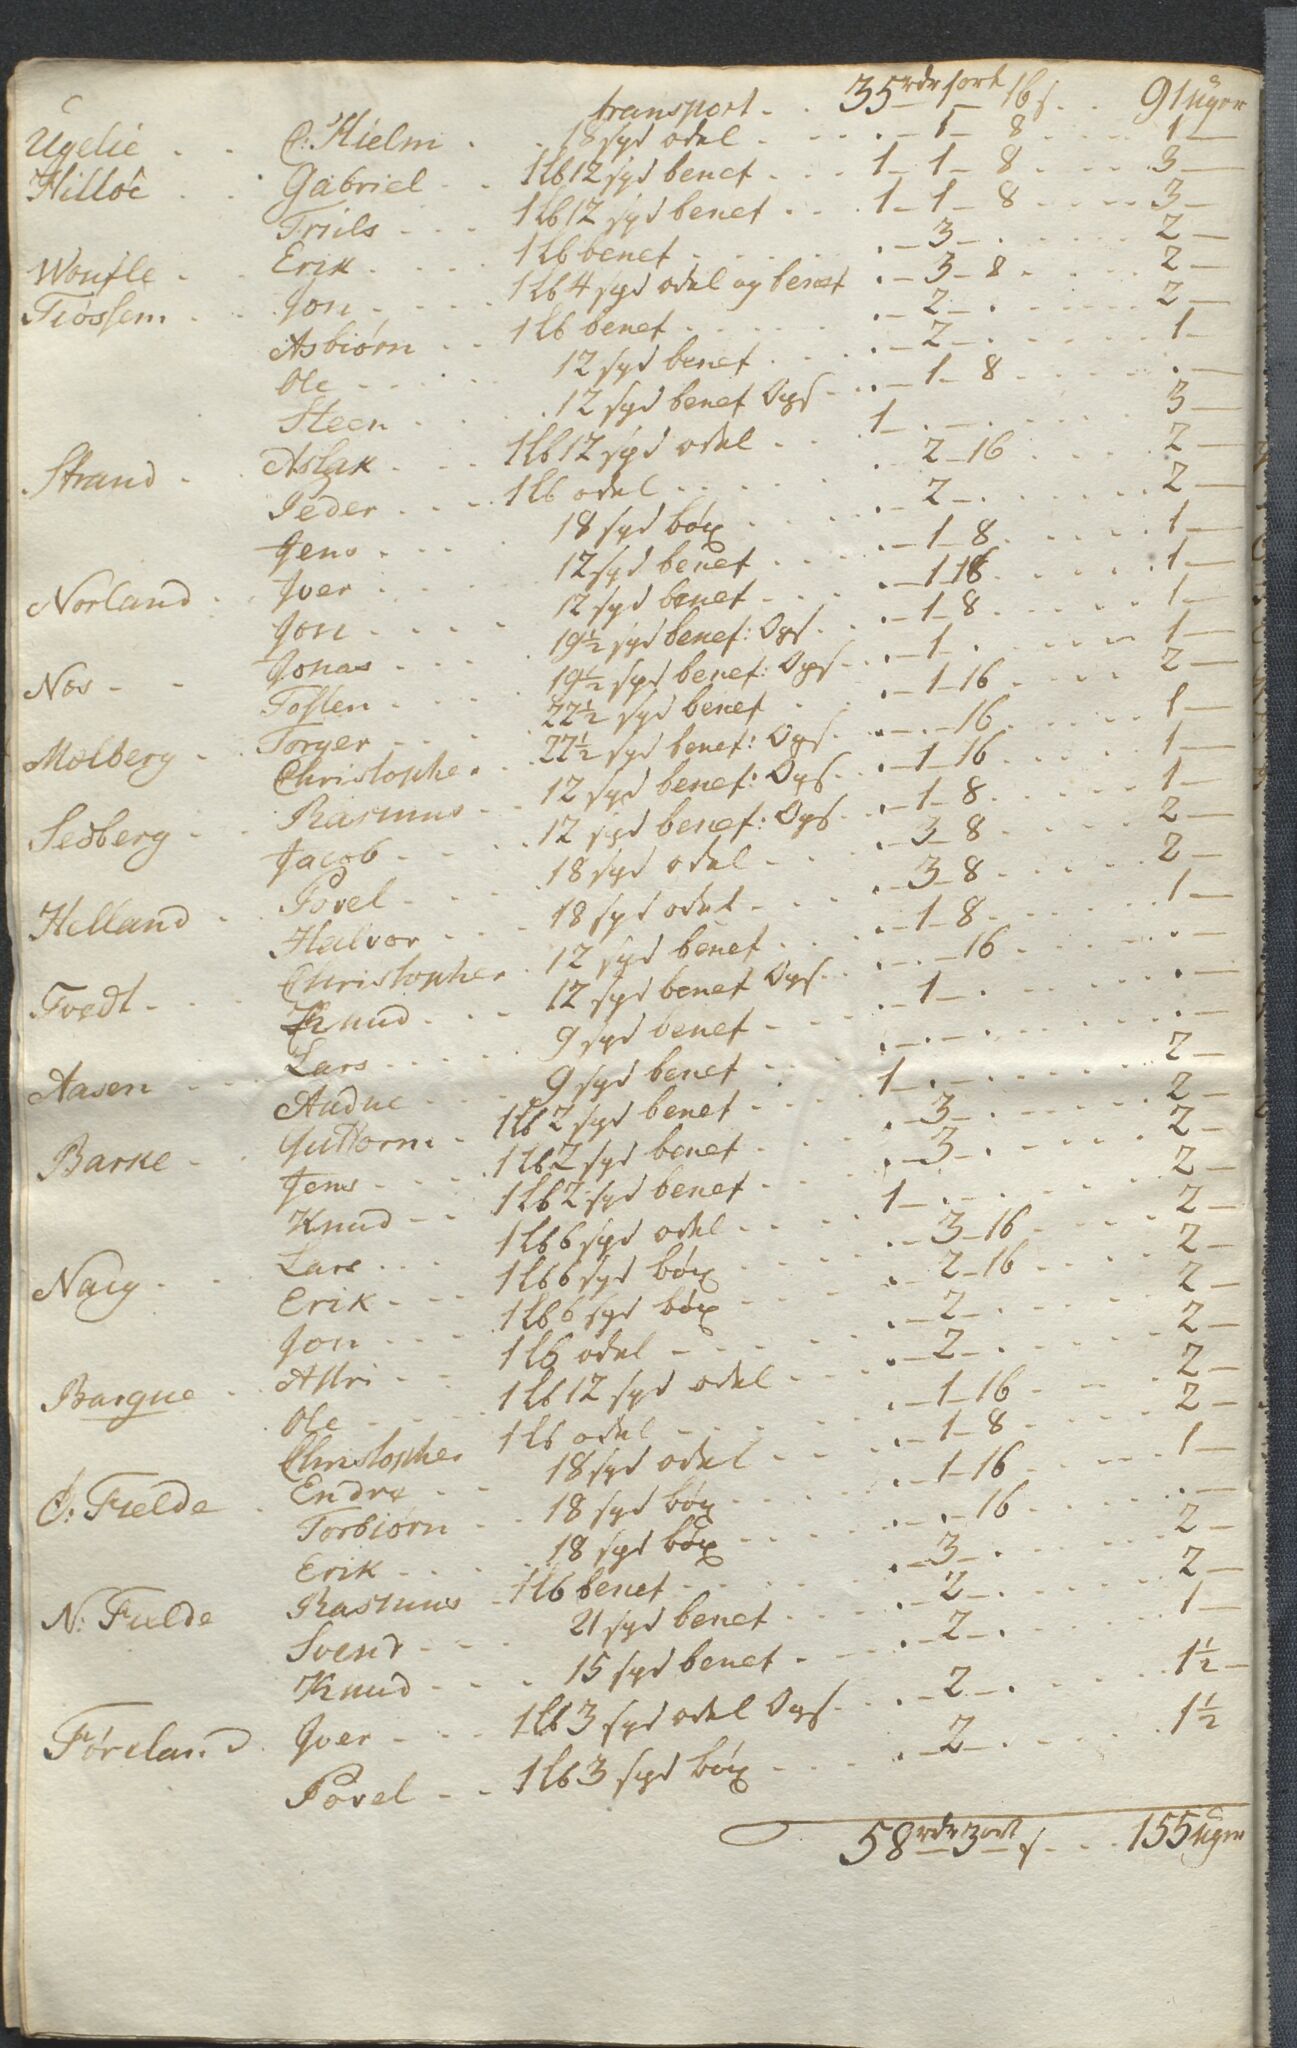 transport . . 35 rdr 1 ort 16 s . . 91 uger
Ugelie . . C: Hielm . . 18 spd odel . . . . . – 1 – 8 . . . . 1 –
Hilløe . . Gabriel . . 1 Lb 12 spd benef . . . 1 – 1 – 8 . . . . 3 –
Triils . . . 1 Lb 12 spd benef . . . 1 – 1 – 8 . . . . 3 –
Woufle . . Erik . . . . 1 Lb benef . . . . . . . – 3 – . . . . . 2 –
Tiøssem . . Jon . . . . 1 Lb 4 spd odel og benef . – 3 – 8 . . . . 2 –
Asbiørn . . 1 Lb benef . . . . . . – 2 – . . . . . 2 –
Ole . . . . . 12 spd benef . . . . . – 2 – . . . . . 1 –
Steen . . . . 12 spd benef Ops . . . – 1 – 8 . . . . . –
Strand . . Aslak . . . 1 Lb 12 spd odel . . . 1 – . – . . . . . 3 –
Peder . . . . 1 Lb odel . . . . . . 2 – 16 . . . . 2 –
Jens . . . . 18 spd bøx . . . . . – 2 – . . . . . 2 –
Norland . Iver . . . . 12 spd benef . . . . – 1 – 8 . . . . 1 –
Jon . . . . . 12 spd benef . . . . – 1 – 16 . . . . 1 –
Nos – – Jonas . . . . 19½ spd benef: Ops . . . – 1 – 8 . . . . 1 –
Tosten . . . . 19½ spd benef: Ops . . – 1 – . . . . . 1 –
Molberg . Torger . . . . 22½ spd benef . . . – 1 – 16 . . . . 2 –
Christopher . . 22½ spd benef: Ops . . – . – 16 . . . . 1 –
Sedberg . . Rasmus . . 12 spd benef: Ops . . – 1 – 16 . . . 1 –
Jacob . . . . 12 spd benef: Ops . . – 1 – 8 . . . . 1 –
Helland . Povel . . . . 18 spd odel . . . . – 3 – 8 . . . . 2 –
Halvor . . . . 18 spd odel . . . . – 3 – 8 . . . . 2 –
Tvedt . . . Christopher . 12 spd benef . . . . – 1 – 8 . . . . 1 –
Knud . . . . 12 spd benef Ops . . . . – 16 . . . . . –
Aasen . . . Lars . . . . . 9 spd benef . . . . – 1 – . . . . . . –
Audne . . . . 9 spd benef . . . . – . – . . . . . . –
Barke . . Guttorm . 1 Lb 2 spd benef . . . 1 – . – . . . . . 2 –
Jens . . . . 1 Lb 2 spd benef . . . . – 3 – . . . . . 2 –
Knud . . 1 Lb 2 spd benef . . . . – 3 – . . . . . 2 –
Naig . . Lars . . . 1 Lb 6 spd odel . . . . 1 – . – . . . . . 2 –
Erik . . . 1 Lb 6 spd bøx . . . . – 3 – 16 . . . . 2 –
Jon . . . . 1 Lb 6 spd bøx . . . . – 2 – 16 . . . . 2 –
Bargue . Astri . . 1 Lb odel – . . . . – 2 – . . . . . 2 –
Ole . . . . . 1 Lb 12 spd odel . . . . – 2 – . . . . . 2 –
Christopher 1 Lb odel . . . . . . – 1 – 16 . . . . 2 –
O: Fielde . Endre . . . 18 spd odel . . . . – 1 – 8 . . . . 2 –
Torbiørn . . 18 spd bøx . . . . – 1 – 16 . . . . 1 –
Erik . . . . 18 spd bøx . . . . . – 16 . . . . . –
N: Fielde Rasmus . 1 Lb benef . . . . . – 3 – . . . . . 2 –
Svend . . . 21 spd benef . . . . – 2 – . . . . . 2 –
Knud . . . . 15 spd benef . . . . – 2 – . . . . . 1 –
Føreland . Iver . . . . 1 Lb 3 spd odel Ops . . . – 2 – . . . . 1½ –
Povel . . 1 Lb 3 spd bøx . . . . – 2 – . . . . 1½
58 rdr 3 ort – s . . . 155 uger